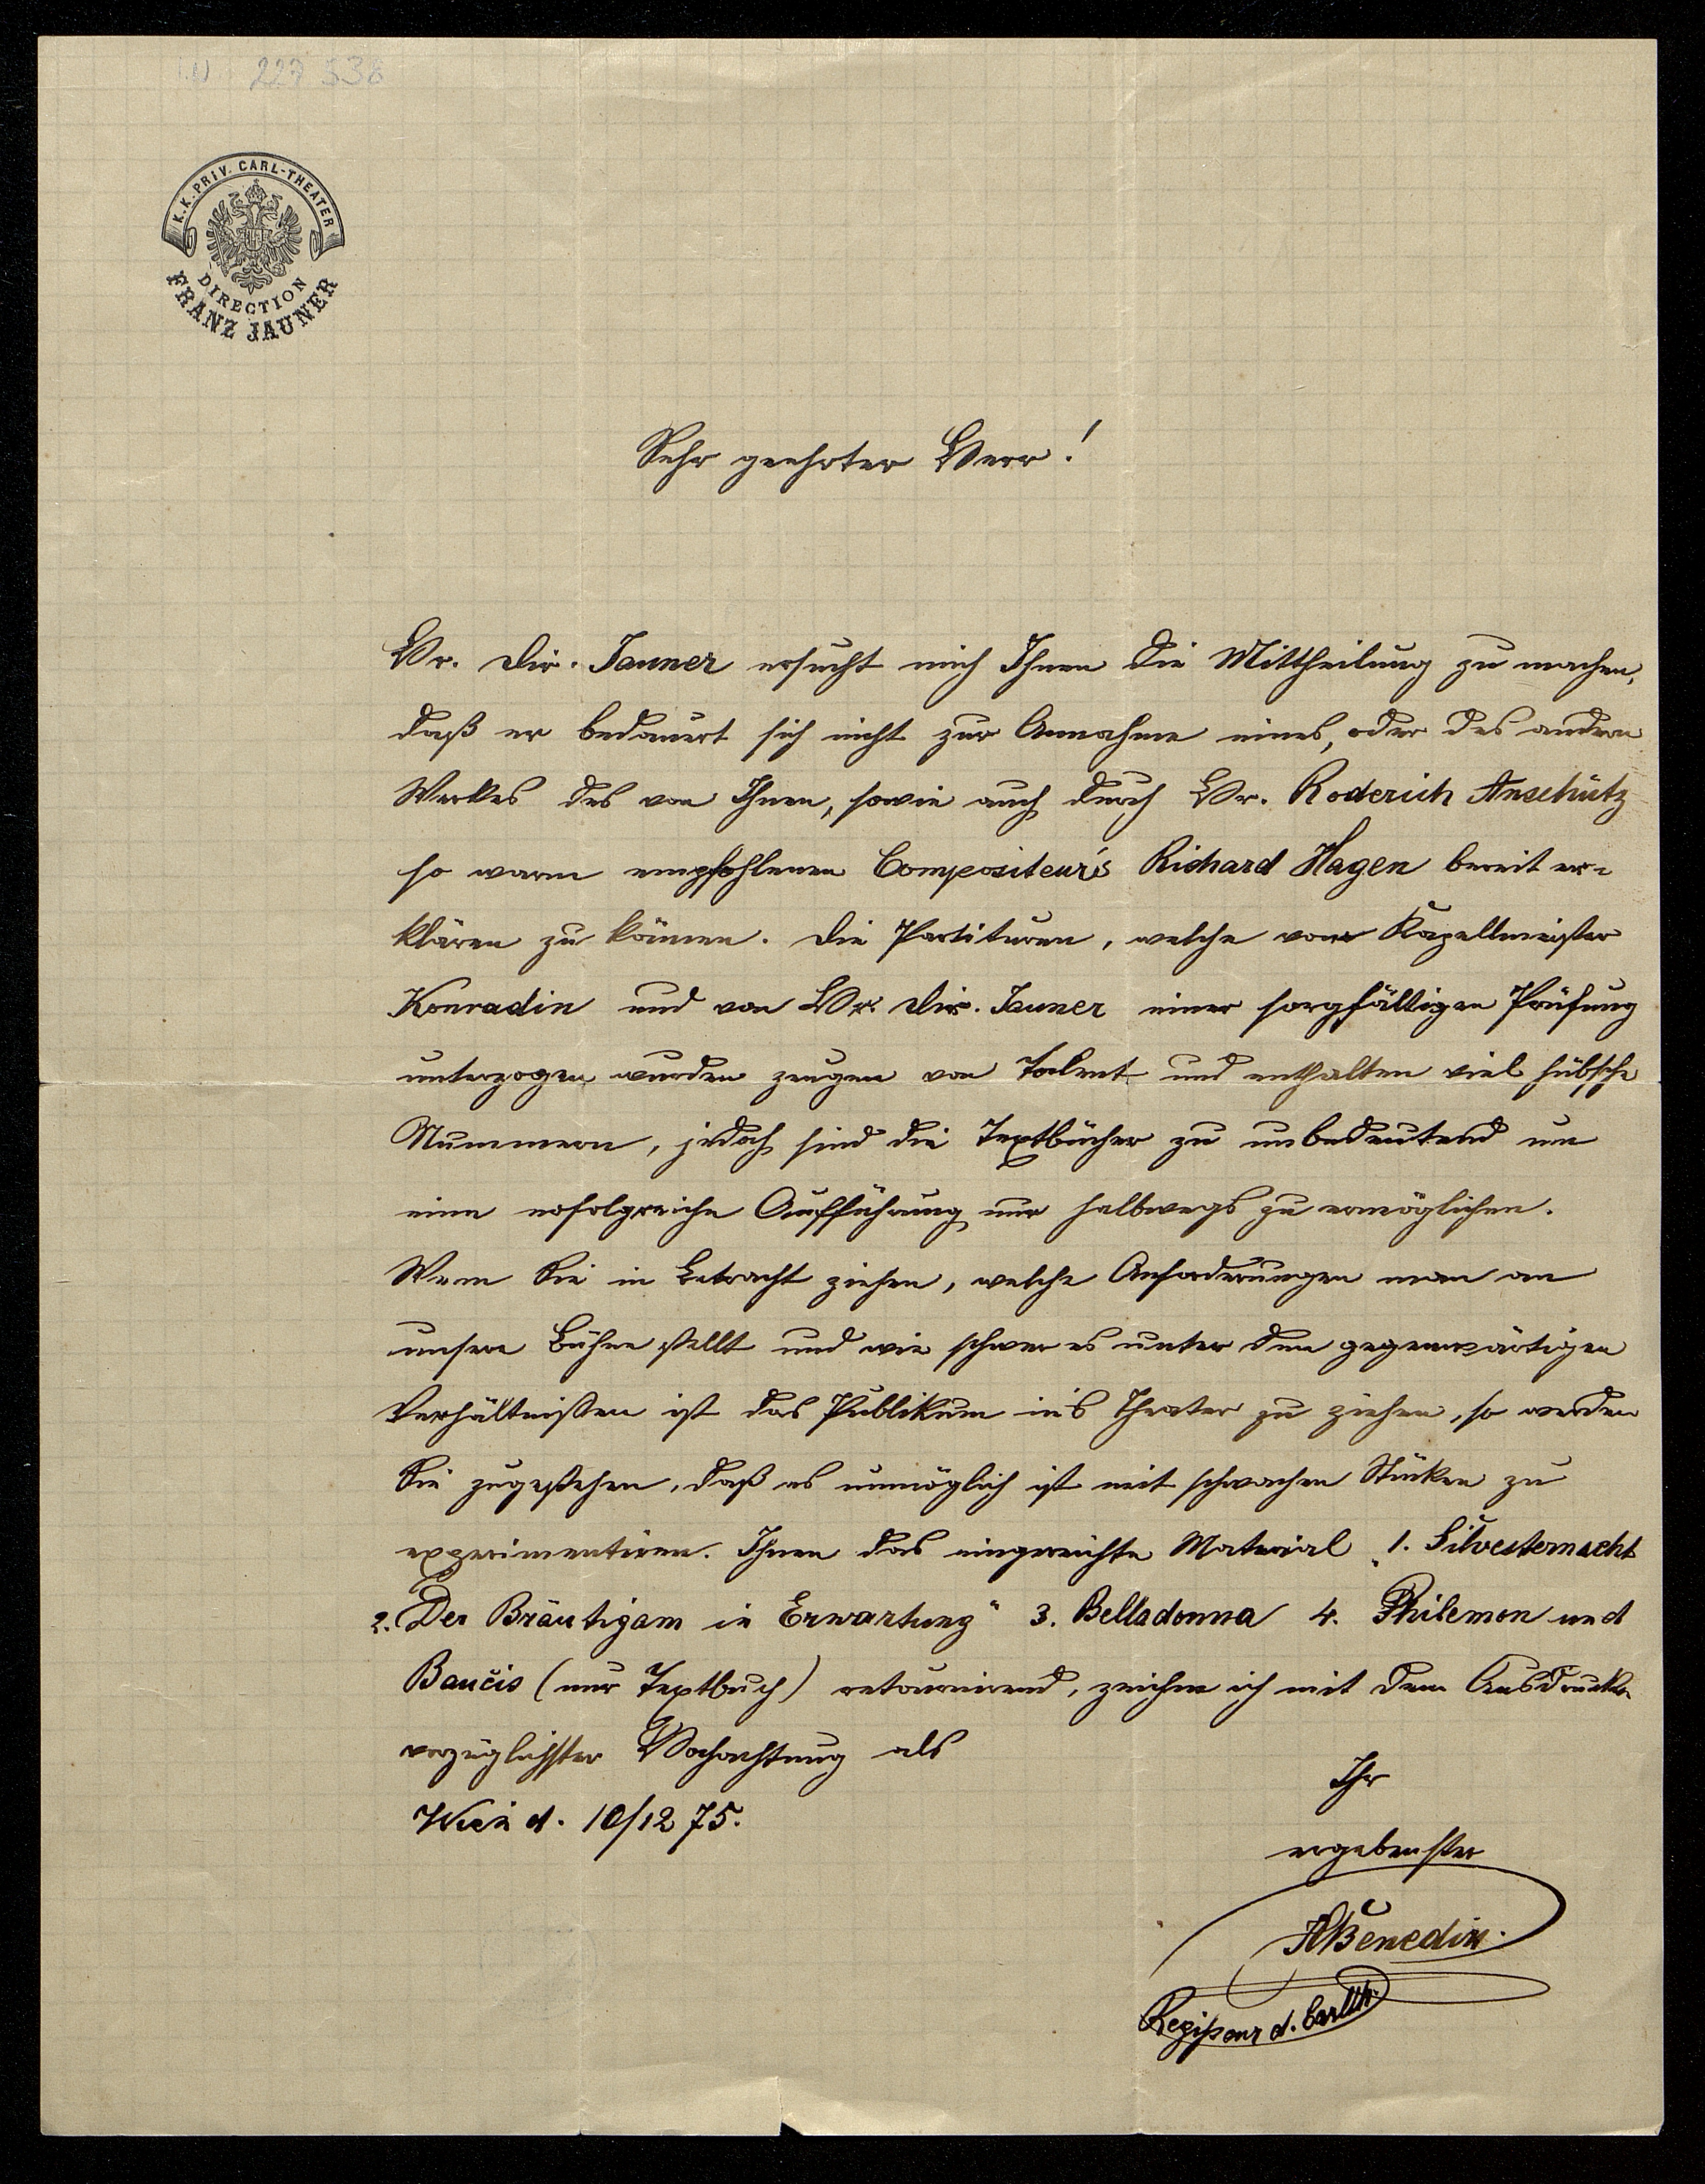 I.N. 227 538
K. K. PRIV. CARL-THEATER
DIRECTION
FRANZ JAUNER
Sehr geehrter Herr!
Hr. Dir. Jauner ersucht mich Ihnen die Mittheilung zu machen,
daß er bedauert sich nicht zur Annahme eines, oder des andern
Werkes des von Ihnen, sowie auch durch Hr. Roderich Anschütz
so warm empfohlenen Compositeur's Richard Hagen bereit er-
klären zu können. Die Partituren, welche vom Kapellmeister
Konradin und von Hr. Dir. Jauner einer sorgfältigen Prüfung
unterzogen wurden zeugen von Talent und enthalten viel hübsche
Nummern, jedoch sind die Textbücher zu unbedeutend um
eine erfolgreiche Aufführung nur halbwegs zu ermöglichen.
Wenn Sie in Betracht ziehen, welche Anforderungen man an
unsere Bühne stellt und wie schwer es unter den gegenwärtigen
Verhältnißen ist das Publikum in's Theater zu ziehen, so werden
Sie zugestehen, daß es unmöglich ist mit schwachen Stücken zu
experimentiren. Ihnen das eingereichte Material „1. Silvesternacht
2. Der Bräutigam in Erwartung" 3. Belladonna 4. Philemon und
Baucis (nur Textbuch) retournirend, zeichne ich mit dem Ausdrucke
vorzüglichster Hochachtung als
Ihr
Wien d. 10/12 75.
ergebenster
Benedix.
Regißeur d. Carlth.